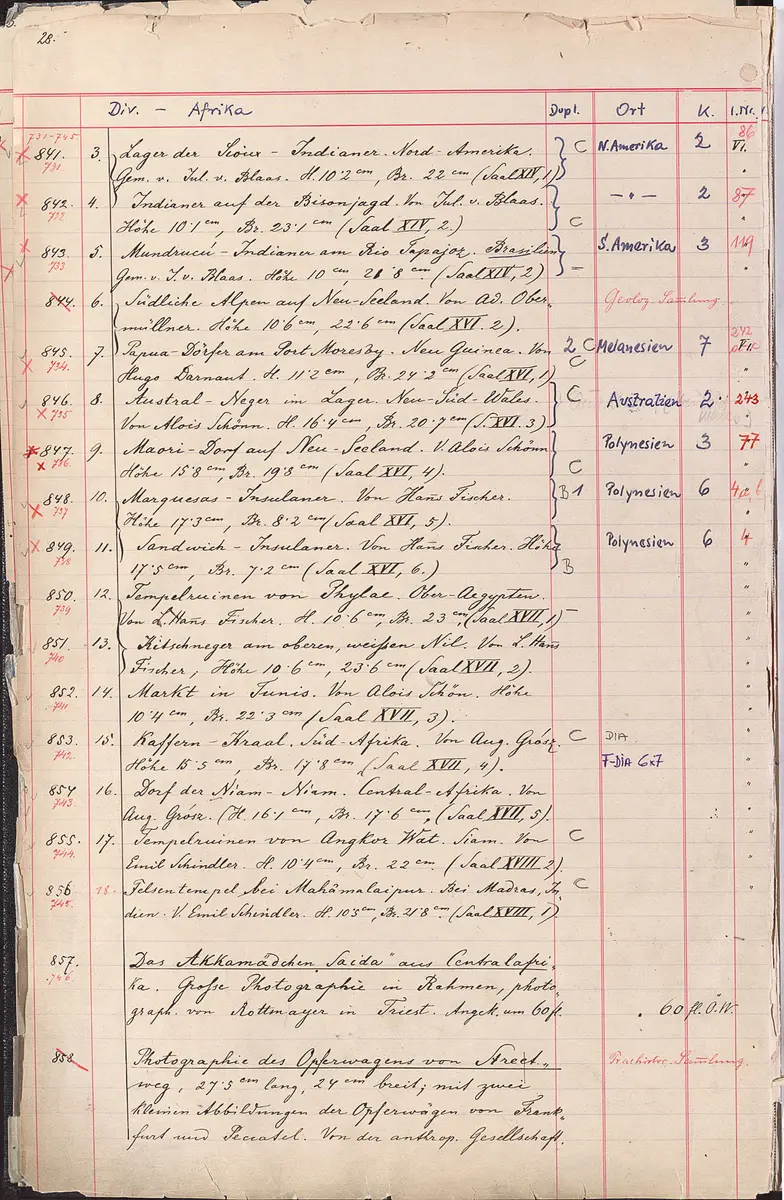 28.
Div. – Afrika Dupl. Ort K. I.Nr.
731–745
841. 3. Lager der Sioux-Indianer. Nord-Amerika. C N.Amerika 2 86 VI.
731 Gem. v. Jul. v. Blaas. H. 10·2 cm, Br. 22 cm (Saal XIV, 1)
842. 4. Indianer auf der Bisonjagd. Von Jul. v. Blaas. – " – 2 87
732 Höhe 10·1 cm, Br. 23·1 cm (Saal XIV, 2.) C "
843 5. Mundrucú-Indianer am Rio Tapajoz. Brasilien S.Amerika 3 119
733 Gem. v. J. v. Blaas. Höhe 10 cm, 21·8 cm (Saal XIV, 2) – "
844. 6. Südliche Alpen auf Neu-Seeland. Von Ad. Ober- Geolog. Sammlung
müllner. Höhe 10·6 cm, 22·6 cm (Saal XVI. 2).
845. 7. Papua-Dörfer am Port Moresby. Neu Guinea. Von 2 C Melanesien 7 242 VI.
734. Hugo Darnaut. H. 11·2 cm, Br. 24·2 cm (Saal XVI, 1) C "
846. 8. Austral-Neger in Lager. Neu-Süd-Wales. C Australien 2· 243
735 Von Alois Schönn. H. 16·4 cm, Br. 20·7 cm (S. XVI. 3)
847. 9. Maori-Dorf auf Neu-Seeland. V. Alois Schönn Polynesien 3 77
736. Höhe 15·8 cm, Br. 19·8 cm (Saal XVI, 4). C "
848. 10. Marquesas-Insulaner. Von Hans Fischer. B 1 Polynesien 6 4a, b
737 Höhe 17·3 cm, Br. 8·2 cm (Saal XVI, 5).
849. 11. Sandwich-Insulaner. Von Hans Fischer. Höhe Polynesien 6 4
738 17·5 cm, Br. 7·2 cm (Saal XVI, 6.) B "
850. 12. Tempelruinen von Phylae. Ober-Aegypten. "
739 Von L. Hans Fischer. H. 10·6 cm, Br. 23 cm, (Saal XVII, 1) –
851. 13. Kitschneger am oberen, weißen Nil. Von L. Hans "
740 Fischer, Höhe 10·6 cm, 23·6 cm (Saal XVII, 2).
852. 14. Markt in Tunis. Von Alois Schön. Höhe "
741 10·4 cm, Br. 22·3 cm (Saal XVII, 3).
853. 15. Kaffern-Kraal. Süd-Afrika. Von Aug. Grósz. C DIA "
742. Höhe 15·5 cm, Br. 17·8 cm (Saal XVII, 4). F-DIA 6x7
854 16. Dorf der Niam-Niam. Central-Afrika. Von "
743. Aug. Grósz. (H. 16·1 cm, Br. 17·6 cm, (Saal XVII, 5).
855. 17. Tempelruinen von Angkor Wat. Siam. Von C "
744. Emil Schindler. H. 10·4 cm, Br. 22 cm. (Saal XVIII 2).
856 18. Felsentempel bei Mahâmalaipur. Bei Madras, In- C "
745. dien. V. Emil Schindler. H. 10·5 cm, Br. 21·8 cm. (Saal XVIII, 1)
857. Das Akkamädchen „Saida" aus Centralafri-
746. ka. Große Photographie in Rahmen, photo-
graph. von Rottmayer in Triest. Angek. um 60 fl. 60 fl. Ö.W.
858 Photographie des Opferwagens von Strett- Praehistor. Sammlung
weg, 27·5 cm lang, 24 cm breit; mit zwei
kleinen Abbildungen der Opferwägen von Frank-
furt und Peccatel. Von der anthrop. Gesellschaft.